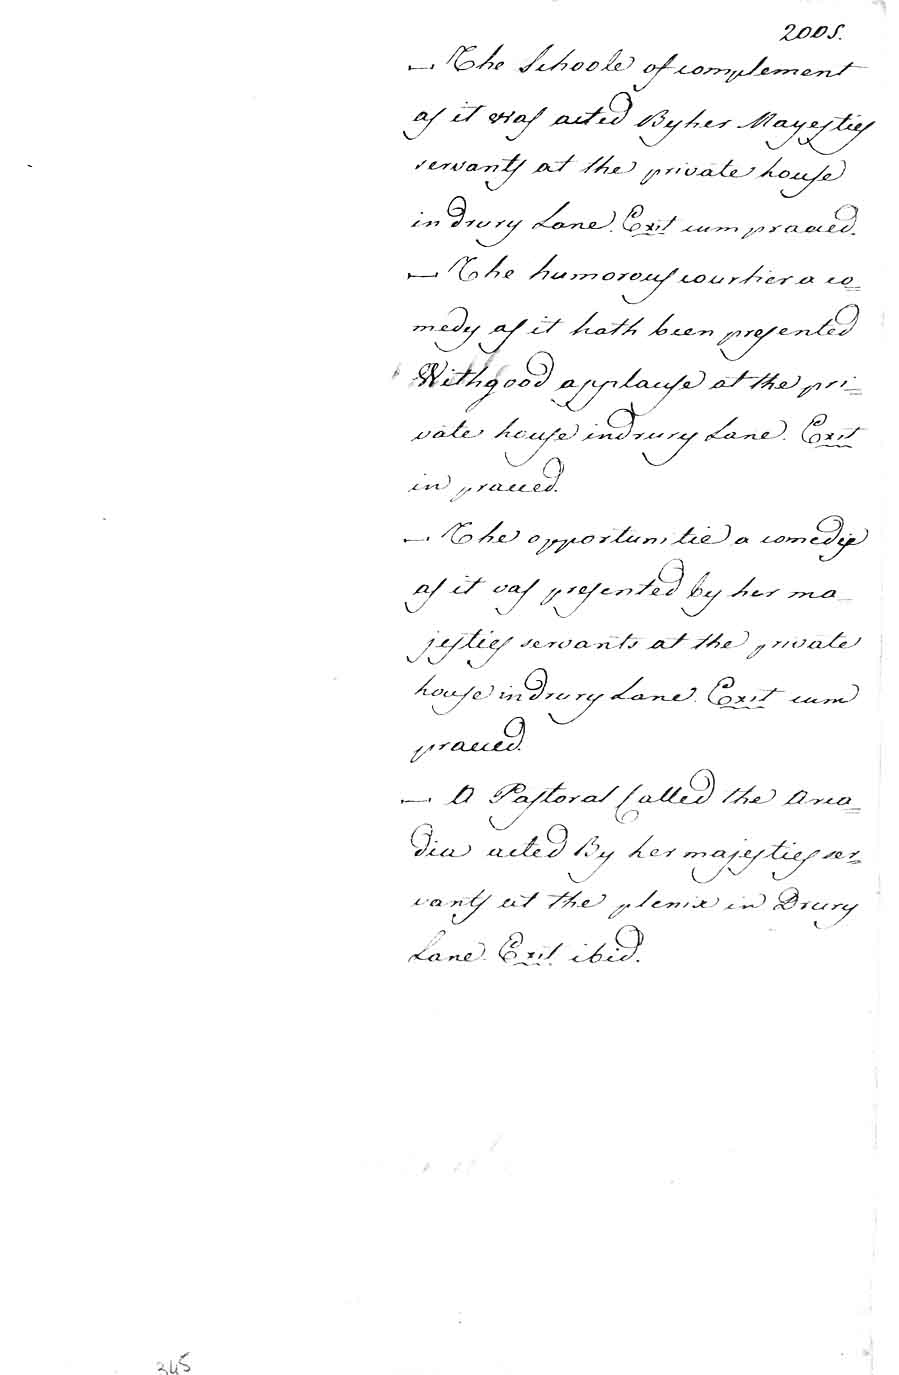 2005.
— The Schoole of complement
as it was acted By her Mayesties
servants at the private house
in drury Lane. Exit cum praced.
— The humorous courtier a co=
medy as it hath been presented
With good applause at the pri=
vate house in drury Lane. Exit
in praced.
— The opportunitie a comedie
as it vas presented by her ma-
jesties servants at the private
house in drury Lane. Exit cum
praced.
— A Pastoral Called the Arca=
dia acted By her majesties ser=
vants at the plenix in Drury
Lane. Exit ibid.
345